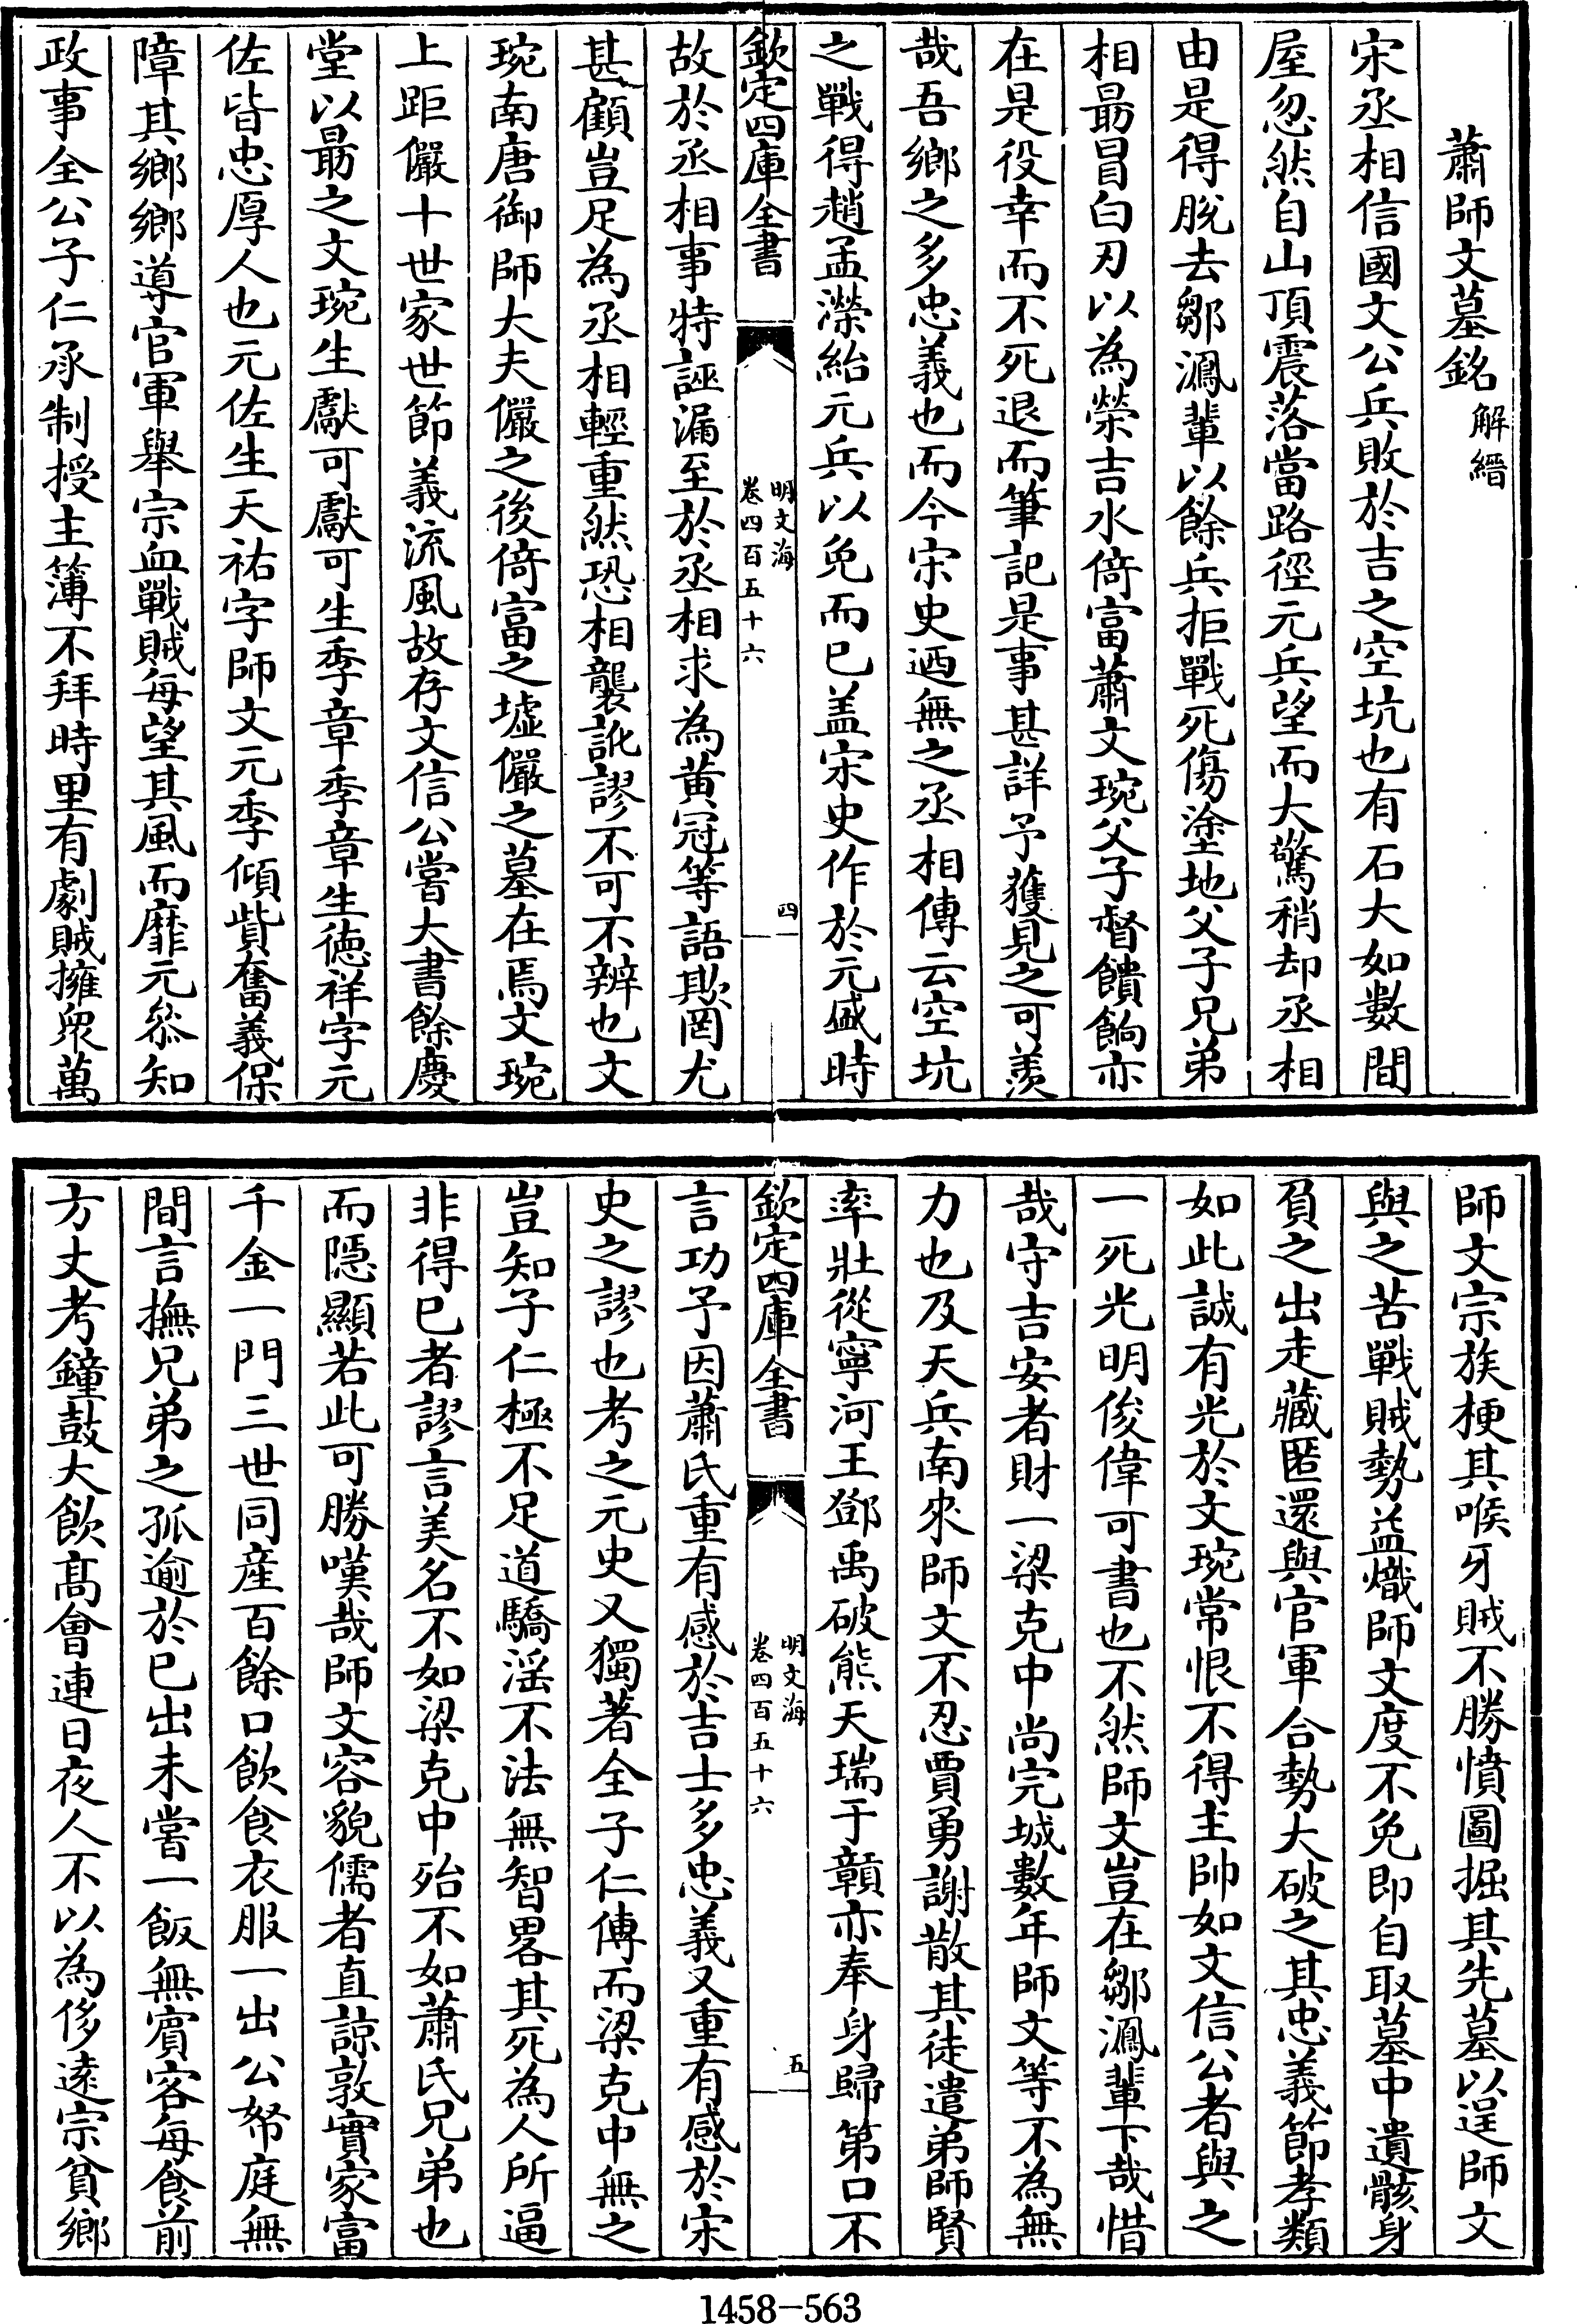 蕭師文墓銘 解縉
宋丞相信國文公兵敗於吉之空坑也有石大如數間
屋忽然自山頂震落當路徑元兵望而大驚稍却丞相
由是得脫去鄒㵯輩以餘兵拒戰死傷塗地父子兄弟
相朂冒白刃以為榮吉水倚富蕭文琬父子督饋餉亦
在是役幸而不死退而筆記是事甚詳予獲見之可羨
哉吾鄉之多忠義也而今宋史迺無之丞相傳云空坑
之戰得趙孟濚紿元兵以免而已盖宋史作於元盛時
欽定四庫全書
明文海
卷四百五十六
四
故於丞相事特誣漏至於丞相求為黄冠等語欺罔尤
甚顧豈足為丞相輕重然恐相襲訛謬不可不辨也文
琬南唐御師大夫儼之後倚富之墟儼之墓在焉文琬
上距儼十世家世節義流風故存文信公嘗大書餘慶
堂以朂之文琬生獻可獻可生季章季章生徳祥字元
佐皆忠厚人也元佐生天祐字師文元季傾貲奮義保
障其鄉鄉導官軍舉宗血戰賊每望其風而靡元叅知
政事全公子仁承制授主簿不拜時里有劇賊擁衆萬
師文宗族梗其喉牙賊不勝憤圖掘其先墓以逞師文
與之苦戰賊勢益熾師文度不免即自取墓中遺骸身
負之出走藏匿還與官軍合勢大破之其忠義節孝類
如此誠有光於文琬常恨不得主帥如文信公者與之
一死光明俊偉可書也不然師文豈在鄒㵯輩下哉惜
哉守吉安者財一梁克中尚完城數年師文等不為無
力也及天兵南來師文不忍賈勇謝散其徒遣弟師賢
率壯從寧河王鄧禹破熊天瑞于贛亦奉身歸第口不
欽定四庫全書
明文海
卷四百五十六
五
言功予因蕭氏重有感於吉士多忠義又重有感於宋
史之謬也考之元史又獨著全子仁傳而梁克中無之
豈知子仁極不足道驕淫不法無智畧其死為人所逼
非得已者謬言美名不如梁克中殆不如蕭氏兄弟也
而隱顯若此可勝嘆哉師文容貌儒者直諒敦實家富
千金一門三世同産百餘口飲食衣服一出公帑庭無
間言撫兄弟之孤逾於已出未嘗一飯無賓客每食前
方丈考鐘鼓大飲髙會連日夜人不以為侈逺宗貧鄉
1458—563